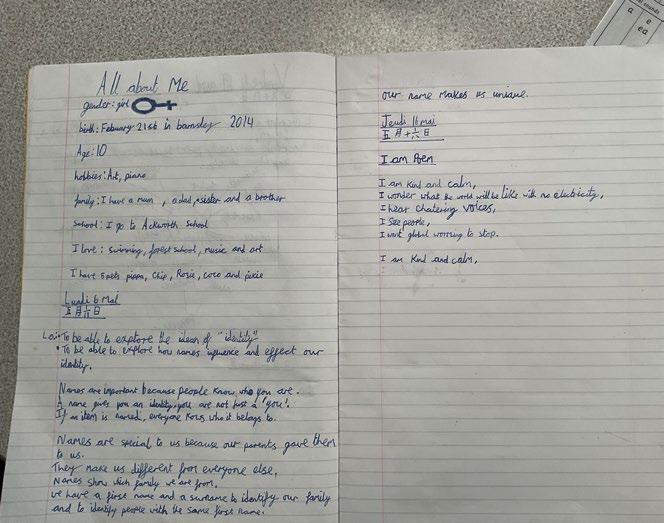 All about Me
gender: girl
birth: Febuary 21st in barnsley 2014
Age: 10
hobbies: Art, piano
family: I have a mum, a dad, a sister and a brother
school: I go to Ackworth School
I love: swimming, forest school, music and art
I have 5 pets pippa, Chip, Rosie, coco and pixie
Lundi 6 Mai
五月六日
Lo: • To be able to explore the idean of "identity"
• To be able to explore how names influence and effect our
identity.
Names are important because people know who you are.
A name gives you an identity, you are not just a 'you'.
If an item is named, everyone knows who it belongs to.
Names are special to us because our parents gave them
to us.
They make us different from everyone else,
Names show which family we are from.
we have a first name and a surname to identify our family
and to identify people with the same first name.
our name makes us unique.
Jeudi 16 mai
五月十六日
I am Poem
I am kind and calm,
I wonder what the world will be like with no electricity,
I hear chatering voices,
I see people,
I want global worming to stop.
I am kind and calm,
I
a e
ea